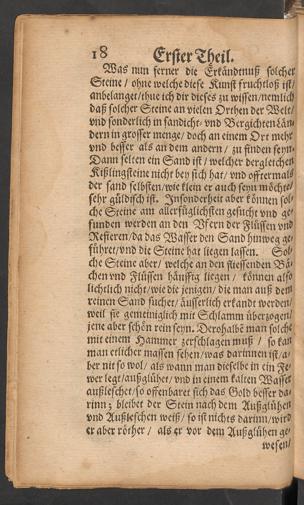 18 Erster Theil.
Was nun ferner die Erkändtnuß solcher
Steine / ohne welche diese Kunst fruchtloß ist /
anbelanget / thue ich dir dieses zu wissen / nemlich
daß solcher Steine an vielen Orthen der Welt /
vnd sonderlich in sandicht- vnd Bergichten Län-
dern in grosser menge / doch an einem Ort mehr
vnd besser als an dem andern / zu finden seyn.
Dann selten ein Sand ist / welcher dergleichen
Kißlingsteine nicht bey sich hat / vnd offtermals
der sand selbsten / wie klein er auch seyn möchte /
sehr güldisch ist. Insonderheit aber können sol-
che Steine am allerfüglichsten gesucht vnd ge-
funden werden an den Vfern der Flüssen vnd
Refieren / da das Wasser den Sand hinweg ge-
führet / vnd die Steine hat liegen lassen. Sol-
che Steine aber / welche an den fliessenden Bä-
chen vnd Flüssen häuffig liegen / können also
liechtlich nicht / wie die jenigen / die man auß dem
reinen Sand suchet / äusserlich erkandt werden /
weil sie gemeiniglich mit Schlamm überzogen /
jene aber schön rein seyn. Derohalbē man solche
mit einem Hammer zerschlagen muß / so kan
man etlicher massen sehen / was darinnen ist / a-
ber nit so wol / als wann man dieselbe in ein Fe-
wer legt / außglühet / vnd in einem kalten Wasser
außleschet / so offenbaret sich das Gold besser da-
rinn; bleibet der Stein nach dem Außglühen
vnd Außleschen weiß / so ist nichts darinn / wird
er aber röther / als er vor dem Außglühen ge-
wesen /